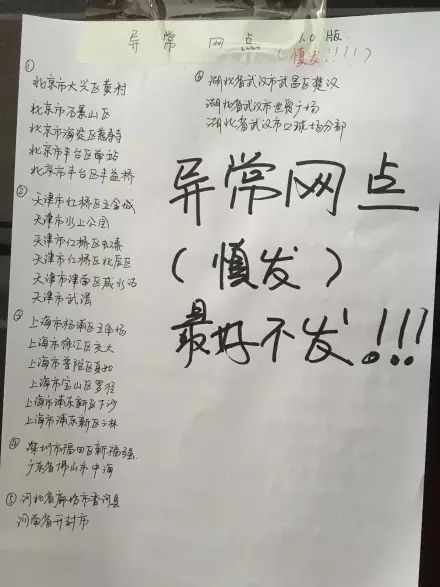 异常网点 1.0版
(慎发!!!!)
①
北京市大兴区黄村
北京市石景山区
北京市海淀区慈寿寺
北京市丰台区西站
北京市丰台区丰益桥
②
天津市红桥区五金城
天津市水上公园
天津市红桥区虹泰
天津市红桥区北辰区
天津市津南区咸水沽
天津市武清
③
上海市杨浦区五角场
上海市徐汇区交大
上海市普陀区真如
上海市宝山区罗泾
上海市浦东新区下沙
上海市浦东新区三林
④
深圳市福田区新福强
广东省佛山市中海
⑤ 河北省廊坊市香河县
河南省开封市
⑥ 湖北省武汉市武昌区楚汉
湖北省武汉市世贸广场
湖北省武汉市口球场分部
异常网点
(慎发)
最好不发!!!